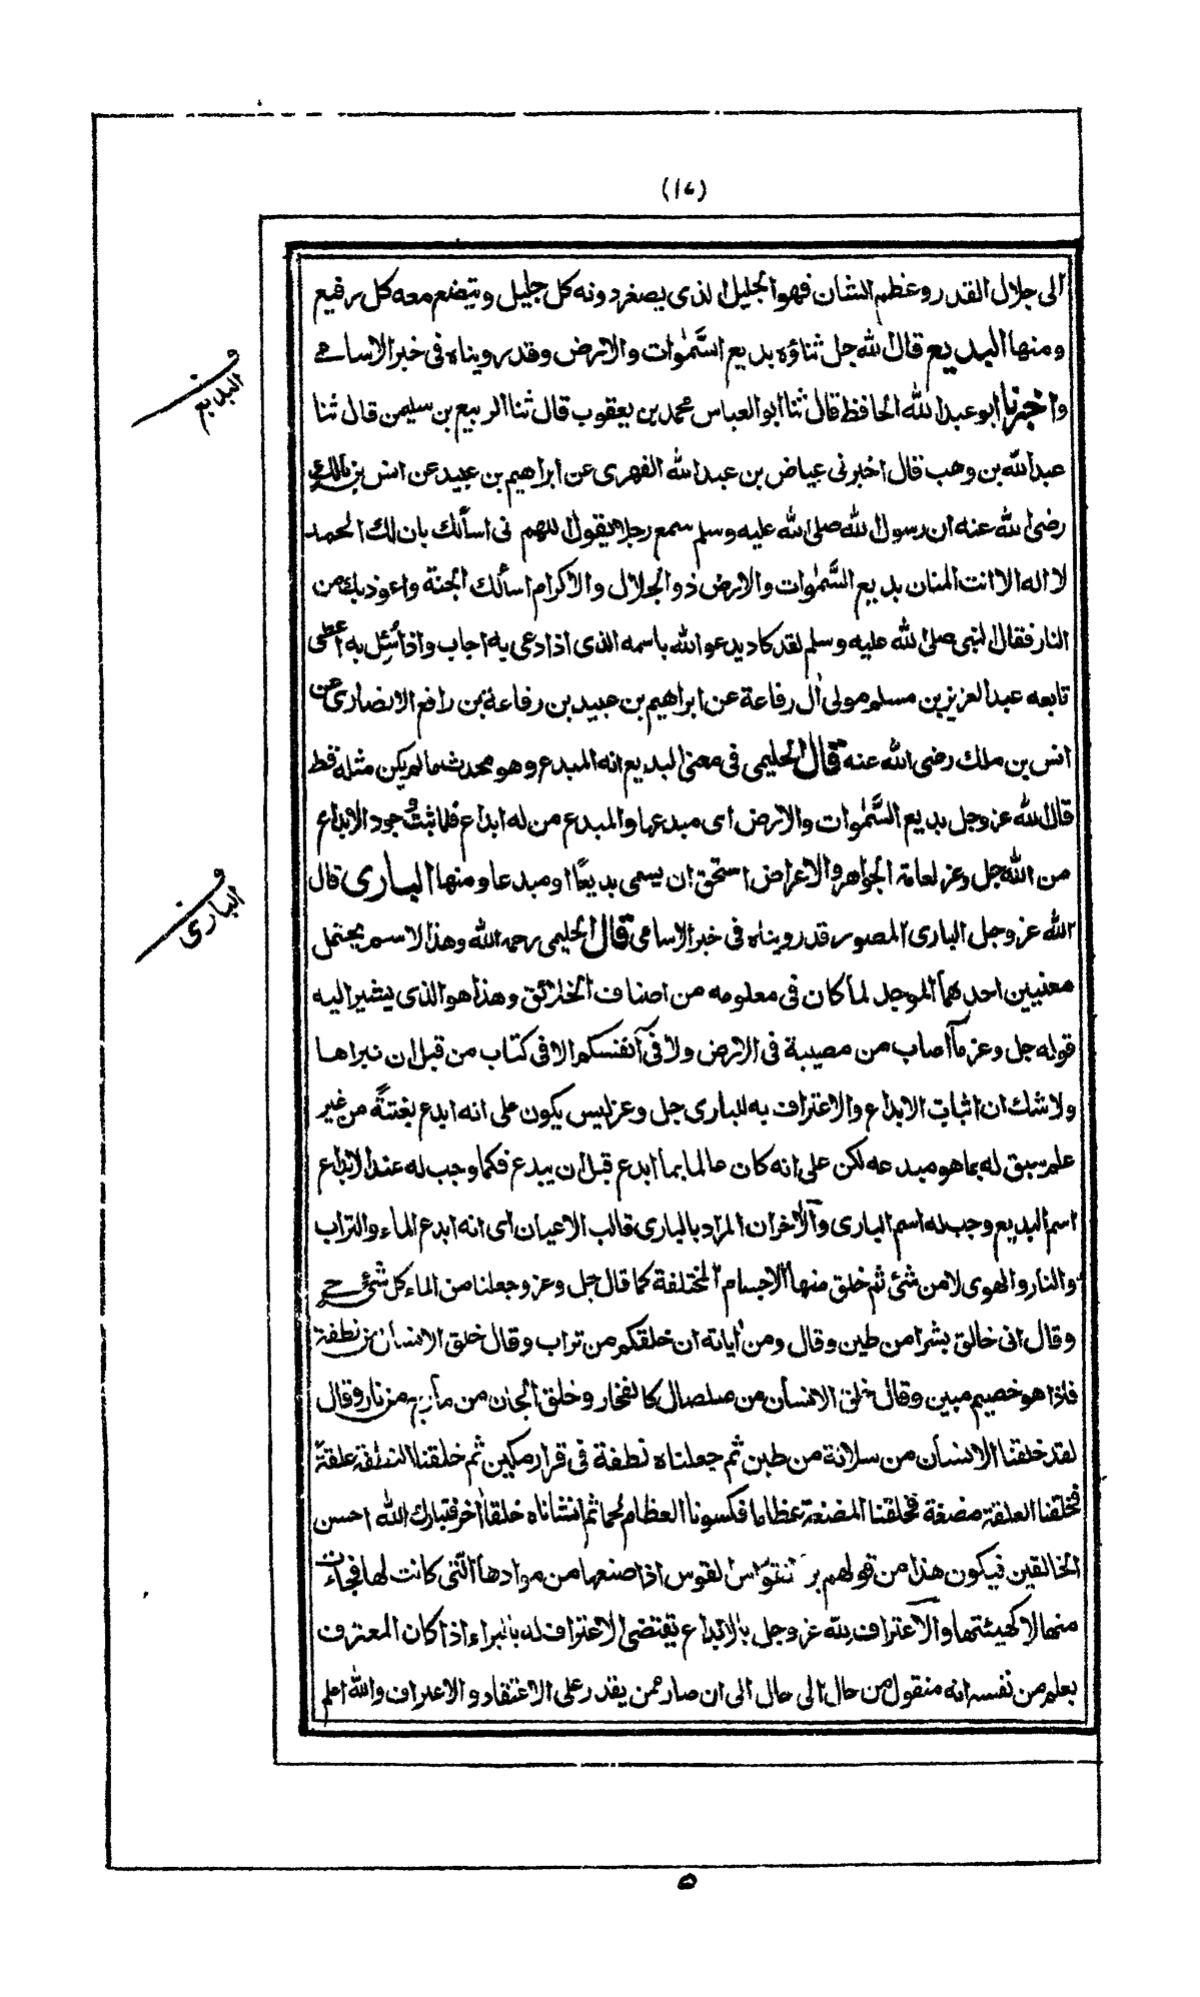 (١٧)
الى جلال القدر وعظيم الشان فهو الجليل الذى يصغر دونه كل جليل ويتضع معه كل رفيع
ومنها البديع قال الله جل ثناؤه بديع السَّمٰوات والارض وقد رويناه فى خبر الاسامى
البديع
واخبرنا ابو عبد الله الحافظ قال ثنا ابو العباس محمد بن يعقوب قال ثنا الربيع بن سليمن قال ثنا
عبد الله بن وهب قال اخبرنى عياض بن عبد الله الفهرى عن ابراهيم بن عبيد عن انس بن مالك
رضى الله عنه ان رسول الله صلى الله عليه وسلم سمع رجلا يقول اللهم نى اسألك بان لك الحمد
لا اله الا انت المنان بديع السَّمٰوات والارض ذو الجلال والاكرام اسألك الجنة واعوذ بك من
النار فقال النبى صلى الله عليه وسلم لقد كاد يدعو الله باسمه الذى اذا دعى به اجاب واذا سُئِل به اعطى
تابعه عبد العزيز بن مسلم مولى اٰل رفاعة عن ابراهيم بن عبيد بن رفاعة بن رافع الانصارى عن
انس بن ملك رضى الله عنه قال الحليمى فى معنى البديع انه المبدع وهو محدث ما لم يكن مثله قط
قال الله عز وجل بديع السَّمٰوات والارض اى مبدعها والمبدع من له ابداع فلما ثبت وجود الابداع
من الله جل وعز لعامة الجواهر والاعراض استحق ان يسمى بديعًا او مبدعا ومنها البارى قال
البارئ
الله عز وجل البارى المصور قد رويناه فى خبر الاسامى قال الحليمى رحمه الله وهذا الاسم يحتمل
معنيين احدهما الموجد لما كان فى معلومه من اصناف الخلائق وهذا هو الذى يشير اليه
قوله جل وعز مآ اصاب من مصيبة فى الارض ولا فىٓ انفسكم الا فى كتاب من قبل ان نبراها
ولا شك ان اثبات الابداع والاعتراف به للبارى جل وعز ليس يكون على انه ابدع بغتةً من غير
علم سبق له بما هو مبدعه لكن على انه كان عالما بما ابدع قبل ان يبدع فكما وجب له عند الابداع
اسم البديع وجب له اسم البارى والآخر ان المراد بالبارى قالب الاعيان اى انه ابدع الماء والتراب
والنار والهوى لا من شئ ثم خلق منها الاجسام المختلفة كما قال جل وعز وجعلنا من الماء كل شئ حى
وقال انى خالق بشرا من طين وقال ومن اٰياته ان خلقكم من تراب وقال خلق الانسان من نطفة
فاذا هو خصيم مبين وقال خلق الانسان من صلصال كالفخار وخلق الجان من مارج من نار وقال
لقد خلقنا الانسان من سلالة من طين ثم جعلناه نطفة فى قرار مكين ثم خلقنا النطفة علقة
فخلقنا العلقة مضغة فخلقنا المضغة عظاما فكسونا العظام لحما ثم انشاناه خلقا اٰخر فتبارك الله احسن
الخالقين فيكون هذا من قولهم القواس القوس اذا صنعها من موادها التى كانت لها فجاءت
منها لا كهيئتها والاعتراف لله عز وجل بالابداع يقتضى الاعتراف له بالبراء اذا كان المعترف
يعلم من نفسه انه منقول من حال الى حال الى ان صار ممن يقدر على الاعتقاد والاعتراف والله اعلم
٥